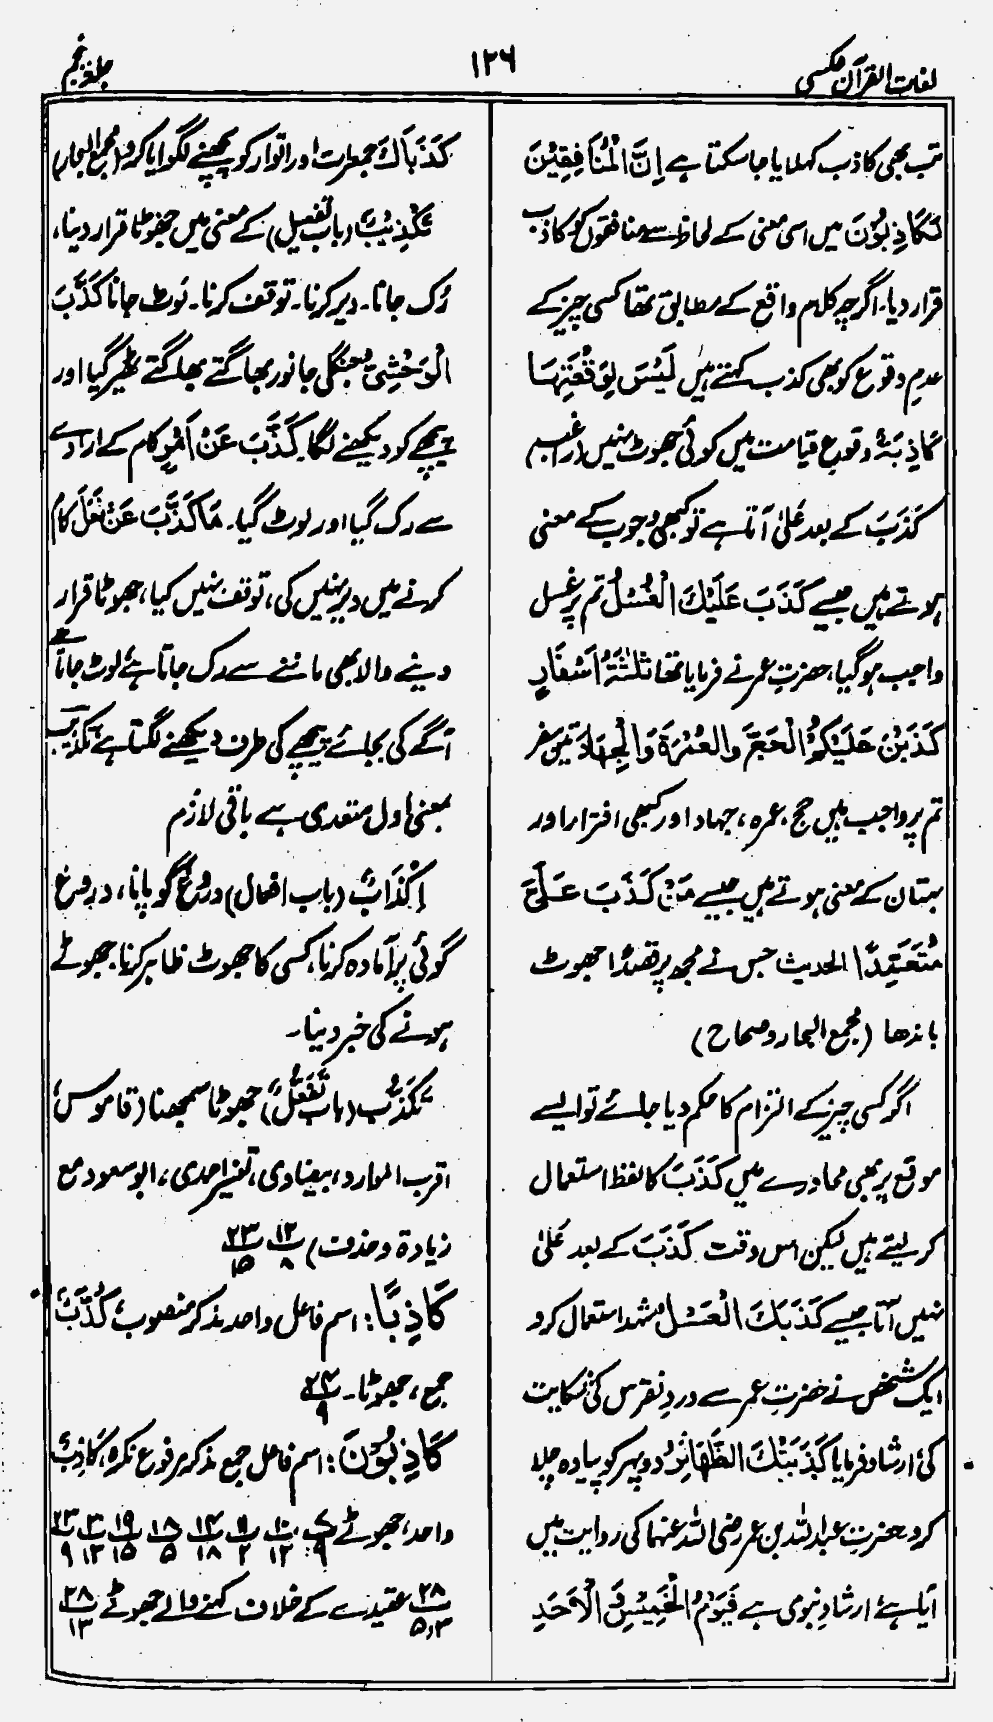 لغات القرآن عکسی
۱۲۶
جلد پنجم
تب بھی کاذب کہلایا جا سکتا ہے اِنَّ الْمُنَافِقِیْنَ
لَکَاذِبُوْنَ میں اسی معنی کے لحاظ سے منافقوں کو کاذب
قرار دیا۔ اگرچہ کلام واقع کے مطابق تھا کسی چیز کے
عدم وقوع کو بھی کذب کہتے ہیں لَیْسَ لِوَقْعَتِہَا
کَاذِبَۃٌ وقوع قیامت میں کوئی جھوٹ نہیں (راغب)
کَذَبَ کے بعد عَلٰی آتا ہے تو کبھی وجوب کے معنی
ہوتے ہیں جیسے کَذَبَ عَلَیْکَ الْغُسْلُ تم پر غسل
واجب ہو گیا، حضرت عمر نے فرمایا تھا ثَلٰثَۃُ اَسْفَارٍ
کَذَبْنَ عَلَیْکُمُ الْحَجُّ وَالْعُمْرَۃُ وَالْجِہَادُ تین سفر
تم پر واجب ہیں حج، عمرہ، جہاد اور کبھی افترا اور
بہتان کے معنی ہوتے ہیں جیسے مَنْ کَذَبَ عَلَیَّ
مُتَعَمِّدًا الحدیث جس نے مجھ پر قصدًا جھوٹ
باندھا (مجمع البحار وصحاح)
اگر کسی چیز کے التزام کا حکم دیا جائے تو ایسے
موقع پر بھی محاورے میں کَذَبَ کا لفظ استعمال
کر لیتے ہیں لیکن اس وقت کَذَبَ کے بعد عَلٰی
نہیں آتا جیسے کَذَبَکَ الْعَسَلُ شہد استعمال کرو
ایک شخص نے حضرت عمر سے درد نقرس کی شکایت
کی ارشاد فرمایا کَذَبَتْکَ الظَّہَائِرُ دوپہر کو پیادہ چلا
کرو۔ حضرت عبداللہ بن عمر رضی اللہ عنہما کی روایت میں
آیا ہے ارشاد نبوی ہے فَیَوْمُ الْخَمِیْسِ وَ الْاَحَدِ
کَذَبَاکَ جمعرات اور اتوار کو پچھنے لگوایا کرو (مجمع البحار)
تَکْذِیْبٌ (باب تفعیل) کے معنی ہیں جھوٹا قرار دینا،
رُک جانا۔ دیر کرنا۔ توقف کرنا۔ لوٹ جانا کَذَّبَ
الْوَحْشِیُّ جنگلی جانور بھاگتے بھاگتے ٹھیر گیا اور
پیچھے کو دیکھنے لگا کَذَّبَ عَنْ اَمْرٍ کام کے ارادے
سے رک گیا اور لوٹ گیا۔ مَا کَذَّبَ عَنْ فَعَلَ کام
کرنے میں دیر نہیں کی، توقف نہیں کیا، جھوٹا قرار
دینے والا بھی ماننے سے رک جاتا ہے لوٹ جاتا ہے
آگے کی بجائے پیچھے کی طرف دیکھنے لگتا ہے تکذیب
بمعنی اول متعدی ہے باقی لازم
اِکْذَابٌ (باب افعال) دروغ گو پانا، دروغ
گوئی پر آمادہ کرنا، کسی کا جھوٹ ظاہر کرنا، جھوٹے
ہونے کی خبر دینا۔
تَکَذُّبٌ (باب تَفَعُّلٌ) جھوٹا سمجھنا (قاموس،
اقرب الموارد، بیضاوی، تفسیر احمدی، ابو سعود مع
زیادۃ و حذف) ۱۲/۸ ۲۳/۱۵
کَاذِبًا: اسم فاعل واحد مذکر منصوب کُذَّبٌ
جمع، جھوٹا۔ ۲۴/۹
کَاذِبُوْنَ: اسم فاعل جمع مذکر مرفوع نکرہ، کَاذِبٌ
واحد، جھوٹے ۱۰/۱۲ ۱۱/۲ ۱۴/۱۸ ۱۸/۵ ۱۹/۱۵ ۲۰/۱۳ ۲۳/۹
۲۸/۵،۳ عقیدے کے خلاف کہنے والے جھوٹے ۲۸/۱۳